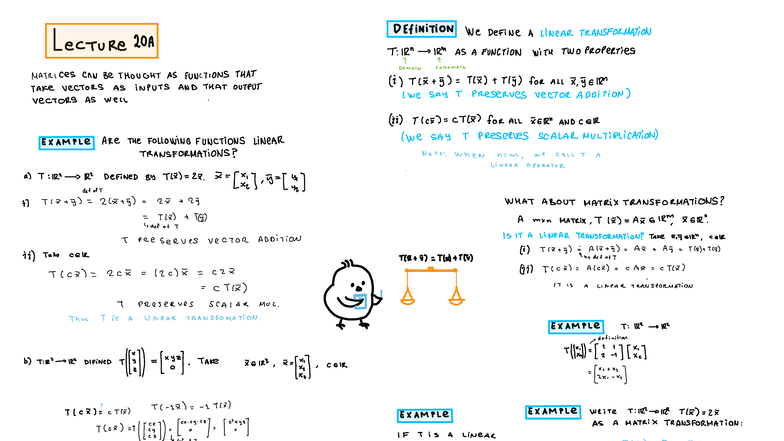 LECTURE 20A
MATRICES CAN BE THOUGHT AS FUNCTIONS THAT
TAKE VECTORS AS INPUTS AND THAT OUTPUT
VECTORS AS WELL
EXAMPLE ARE THE FOLLOWING FUNCTIONS LINEAR
TRANSFORMATIONS?
a) T: ℝ² → ℝ² DEFINED BY T(x̄) = 2x̄. x̄ = [x₁ x₂], ȳ = [y₁ y₂]
def of T
i) T(x̄+ȳ) = 2(x̄+ȳ) = 2x̄ + 2ȳ
= T(x̄) + T(ȳ)
↳ def of T
T PRESERVES VECTOR ADDITION
ii) TAKE c∈ℝ
T(cx̄) = 2cx̄ = (2c)x̄ = c2x̄
= cT(x̄)
T PRESERVES SCALAR MUL.
THUS T IS A LINEAR TRANSFOMATION.
b) T: ℝ³ → ℝ² DIFINED T([x y z]) = [xyz 0]. TAKE x̄∈ℝ³, x̄ = [x₁ x₂ x₃], c∈ℝ
T(cx̄) = cT(x̄) T(-1x̄) = -1T(x̄)
DEFINITION WE DEFINE A LINEAR TRANSFORMATION
T: ℝⁿ → ℝᵐ AS A FUNCTION WITH TWO PROPERTIES
DOMAIN CODOMAIN
(i) T(x̄+ȳ) = T(x̄) + T(ȳ) FOR ALL x̄,ȳ∈ℝⁿ
(WE SAY T PRESERVES VECTOR ADDITION)
(ii) T(cx̄) = cT(x̄) FOR ALL x̄∈ℝⁿ AND c∈ℝ
(WE SAY T PRESERVES SCALAR MULTIPLICATION)
NOTE: WHEN n=m, WE CALL T A
LINEAR OPERATOR
T(x̄+ȳ) = T(x̄)+T(ȳ)
WHAT ABOUT MATRIX TRANSFORMATIONS?
A m×n MATRIX, T(x̄) = Ax̄ ∈ℝᵐ, x̄∈ℝⁿ.
IS IT A LINEAR TRANSFORMATION? TAKE x̄,ȳ∈ℝⁿ, c∈ℝ
(i) T(x̄+ȳ) = A(x̄+ȳ) = Ax̄ + Aȳ = T(x̄)+T(ȳ)
↳ by def of T
(ii) T(cx̄) = A(cx̄) = cAx̄ = cT(x̄)
IT IS A LINEAR TRANSFORMATION
EXAMPLE T: ℝ² → ℝ²
definition
T([x₁ x₂]) = [1 1 2 -1][x₁ x₂]
= [x₁+x₂ 2x₁-x₂]
EXAMPLE
IF T IS A LINEAR
EXAMPLE WRITE T: ℝ² → ℝ² T(x̄) = 2x̄
AS A MATRIX TRANSFORMATION: